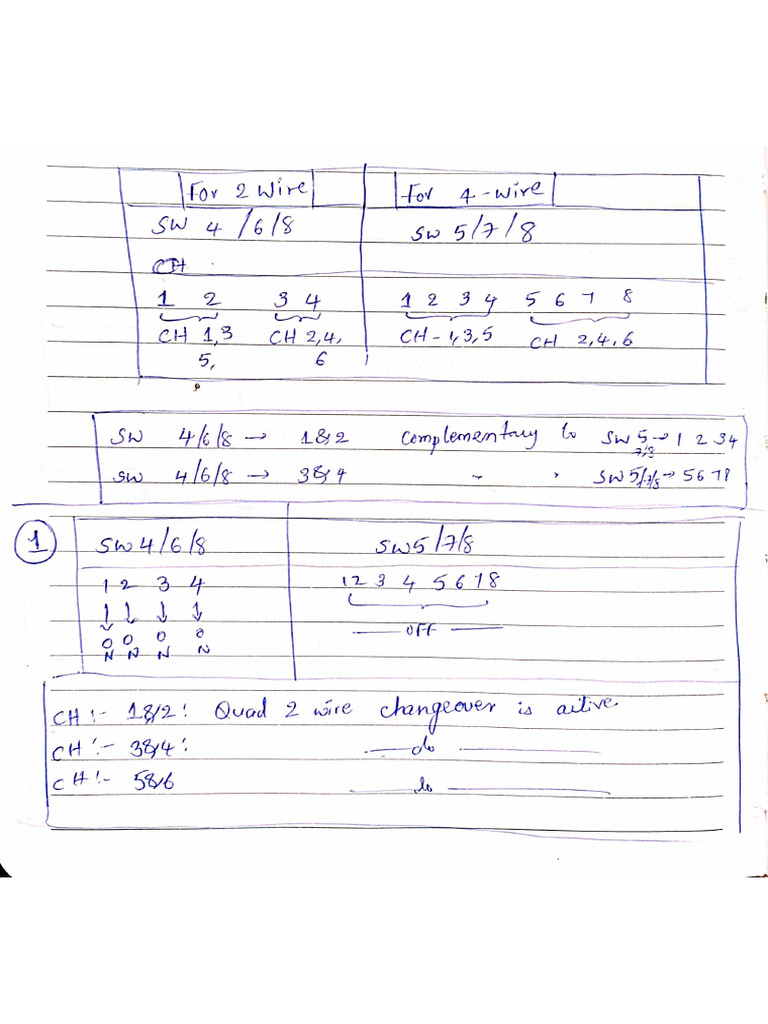 For 2 Wire For 4-wire
SW 4/6/8 SW 5/7/8
CH
1 2 3 4 1 2 3 4 5 6 7 8
CH 1,3 CH 2,4, CH-1,3,5 CH 2,4,6
5, 6
SW 4/6/8 → 1&2 Complementary to SW 5→ 1 2 3 4
7/8
SW 4/6/8 → 3&4 " " SW 5/7/8→ 5 6 7 8
1 SW 4/6/8 SW 5/7/8
1 2 3 4 1 2 3 4 5 6 7 8
↓ ↓ ↓ ↓
ON ON ON ON — OFF —
CH:- 1&2: Quad 2 wire changeover is active
CH:- 3&4: — do —
CH:- 5&6 — do —